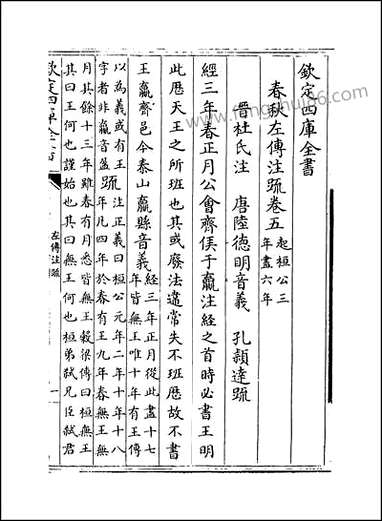 欽定四庫全書
春秋左傳注疏卷五
起桓公三
年盡六年
晉杜氏注 唐陸德明音義 孔穎達疏
經三年春正月公會齊侯于嬴注經之首時必書王明
此厯天王之所班也其或廢法違常失不班厯故不書
王嬴齊邑今泰山嬴縣音義
經三年正月從此盡十七
年皆無王唯十年有王傳
以為義或有王
字者非嬴音盈
疏
注正義曰桓公元年二年十年十八
年凡四年於春有王九年春無王無
月其餘十三年雖春有月悉皆無王穀梁傳曰桓無王
其曰王何也謹始也其曰無王何也桓弟弑兄臣弑君
左傳注疏
一